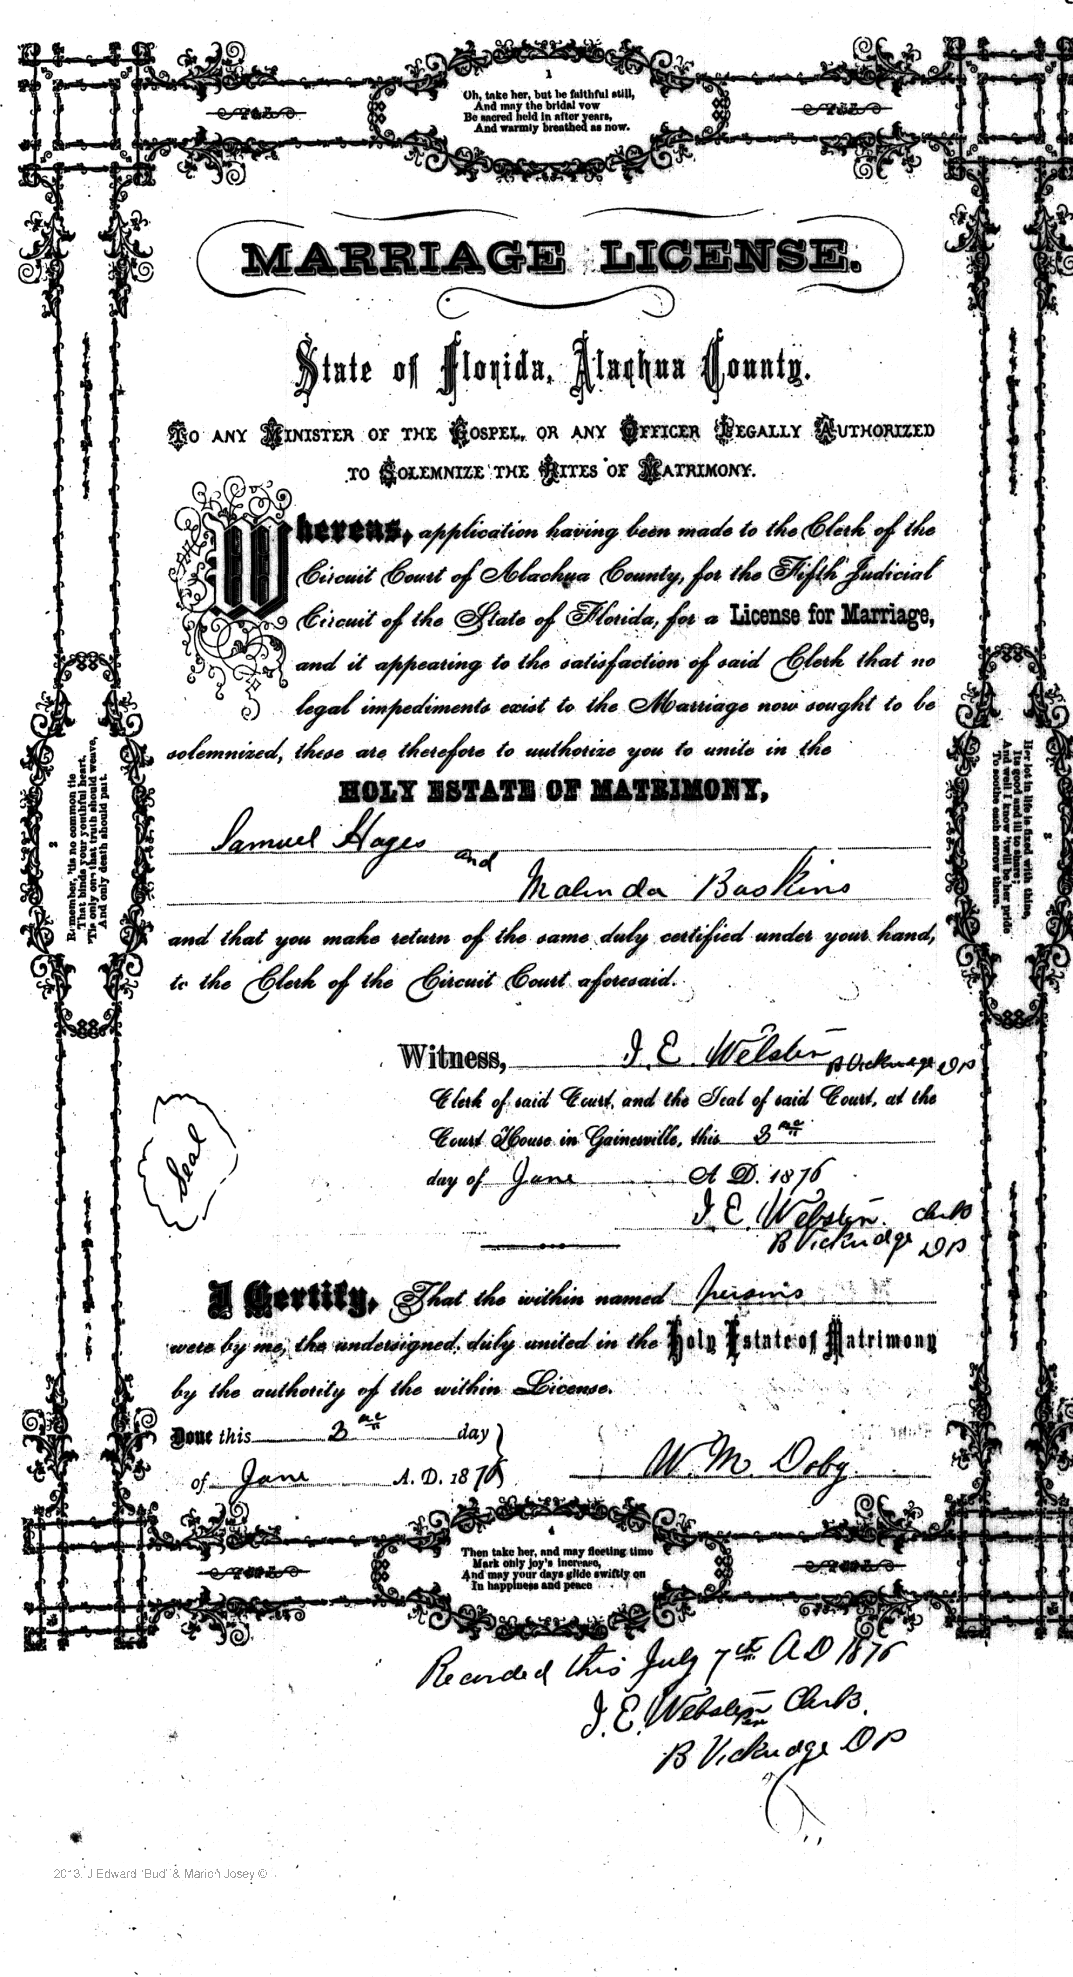 1
Oh, take her, but be faithful still,
And may the bridal vow
Be sacred held in after years,
And warmly breathed as now.
MARRIAGE LICENSE.
State of Florida, Alachua County.
TO ANY MINISTER OF THE GOSPEL, OR ANY OFFICER LEGALLY AUTHORIZED
TO SOLEMNIZE THE RITES OF MATRIMONY.
Whereas, application having been made to the Clerk of the
Circuit Court of Alachua County, for the Fifth Judicial
Circuit of the State of Florida, for a License for Marriage,
and it appearing to the satisfaction of said Clerk that no
legal impediments exist to the Marriage now sought to be
solemnized, these are therefore to authorize you to unite in the
HOLY ESTATE OF MATRIMONY,
Samuel Hages and
Malinda Baskins
and that you make return of the same duly certified under your hand,
to the Clerk of the Circuit Court aforesaid.
2
Remember, 'tis no common tie
That binds your youthful heart,
'Tis only one that truth should weave,
And only death should part.
Her lot in life is fixed with thine,
Its good and ill to share;
And well I know 'twill be her pride
To soothe each sorrow there.
Witness, I. E. Webster B Vickudge DP
Clerk of said Court, and the Seal of said Court, at the
Court House in Gainesville, this 3rd
day of June A. D. 1876
Seal
I. E. Webster. Clerk
B Vickudge DP
I Certify, That the within named persons
were by me, the undersigned, duly united in the Holy Estate of Matrimony
by the authority of the within License.
Done this 3rd day
of June A. D. 1876
W. M. Doby
4
Then take her, and may fleeting time
Mark only joy's increase,
And may your days glide swiftly on
In happiness and peace
Recorded this July 7th AD 1876
I. E. Webster Clerk.
Per
B Vickudge DP
2013. J Edward 'Bud' & Marion Josey ©